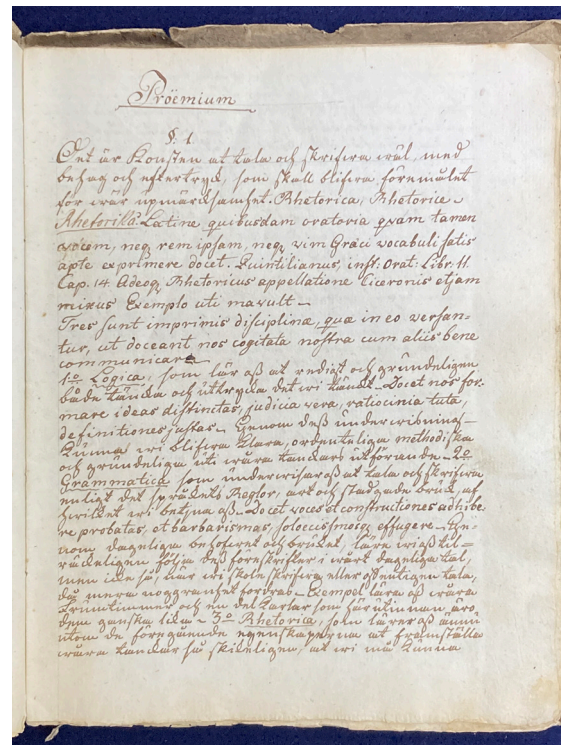 Pröemium
§. 1.
Det är Konsten at tala och skrifwa wäl, med
behag och eftertryck, som skall blifwa föremålet
för wår upmärksamhet. Rhetorica, Rhetorice
Rhetorikà. Latine quibusdam oratoria qvam tamen
vocem, neq, rem ipsam, neq, vim Græci vocabuli satis
apte exprimere docet. Quintilianus, inst: Orat: Libr: 11.
Cap. 14. Adeoq, Rhetoricus appellatione Ciceronis etjam
Exemplo uti mavult
Tres sunt imprimis disciplinæ, quæ in eo versan-
tur, ut doceant nos cogitata nostra cum aliis bene
communicare
1:o Logica, som lär oß at redigt och grundeligen
både tänka och uttrycka det wi tänkt. Docet nos for-
mare ideas distinctas, judicia vera, ratiocinia tuta,
definitiones justas. Genom deß underwisning
kunna wi blifwa klara, ordenteliga methodiska
och grundeliga uti wåra tankars utförande. 2:o
Grammatica som underwisar oß at tala och skrifwa
enligt det språkets Reglor, art och stadgade bruk, af
hwilket wi betjna oß. Docet voces et constructiones adhibe-
re probatas, et barbarismos, soloecismosq, effugere. Ge-
nom dageliga behofwet och bruket, läre wi oß til-
räckeligen följa deß föreskrifter i wårt dageliga tal,
men icke så, när wi skole skrifwa eller offentligen tala,
då mera noggranhet fordras. Exempel lära oß wåra
Fruntimmer och en del Karlar som häruti man äro
dem ganska lika. 3:o Rhetorica, som lärer oß ännu
utom de föregående egenskaperna at framställa
wåra tankar så skickeligen, at wi må kunna